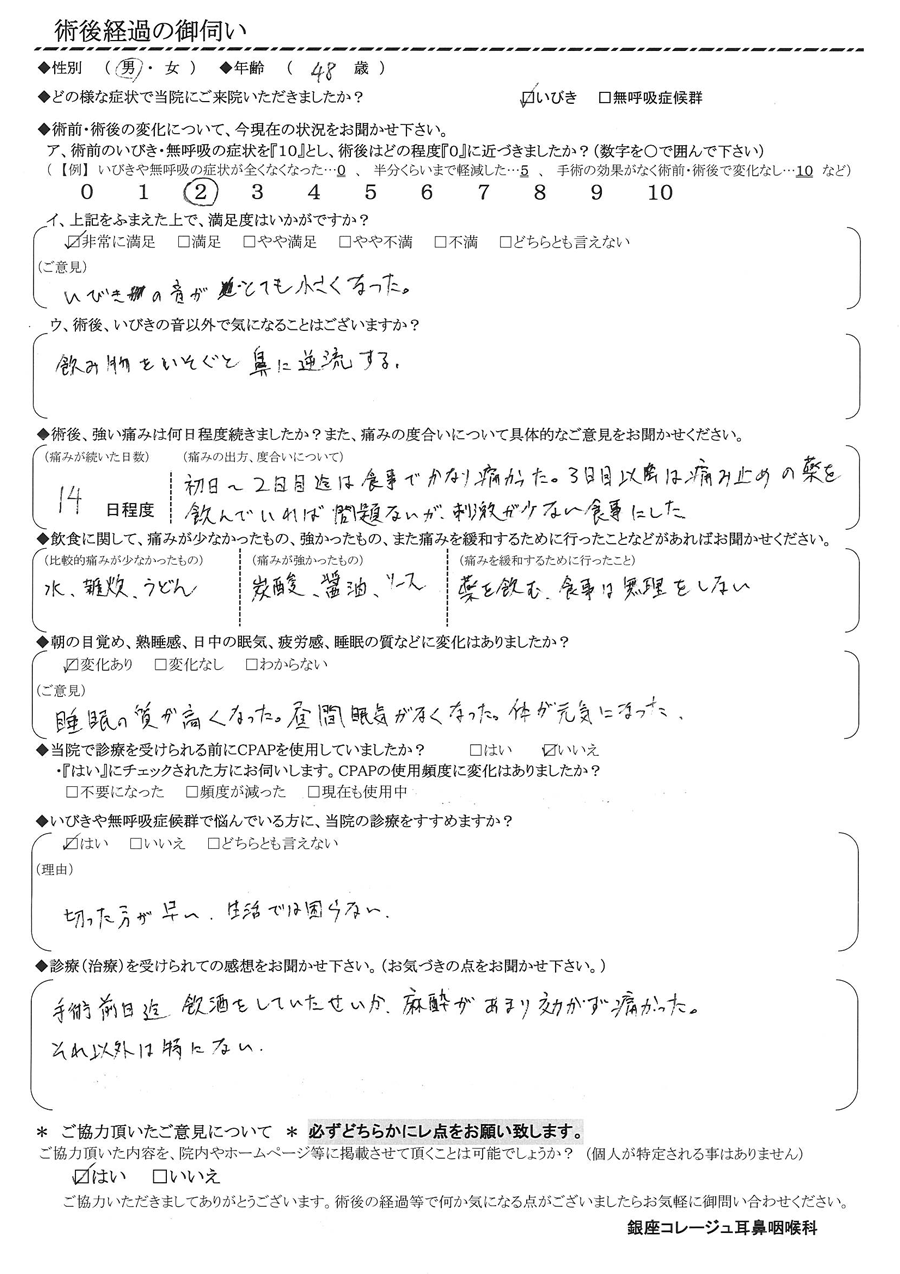 術後経過の御伺い
◆性別 ( 男 ・ 女 ) ◆年齢 ( 48 歳 )
◆どの様な症状で当院にご来院いただきましたか? ☑いびき □無呼吸症候群
◆術前・術後の変化について、今現在の状況をお聞かせ下さい。
ア、術前のいびき・無呼吸の症状を『10』とし、術後はどの程度『0』に近づきましたか?(数字を○で囲んで下さい)
(【例】 いびきや無呼吸の症状が全くなくなった…0 、 半分くらいまで軽減した…5 、 手術の効果がなく術前・術後で変化なし…10 など)
0 1 2 3 4 5 6 7 8 9 10
イ、上記をふまえた上で、満足度はいかがですか?
☑非常に満足 □満足 □やや満足 □やや不満 □不満 □どちらとも言えない
(ご意見)
いびきの音がとても小さくなった。
ウ、術後、いびきの音以外で気になることはございますか?
飲み物をいそぐと鼻に逆流する。
◆術後、強い痛みは何日程度続きましたか?また、痛みの度合いについて具体的なご意見をお聞かせください。
(痛みが続いた日数) (痛みの出方、度合いについて)
初日〜2日目迄は食事でかなり痛かった。3日目以降は痛み止めの薬を
14 日程度 飲んでいれば問題ないが、刺激が少ない食事にした
◆飲食に関して、痛みが少なかったもの、強かったもの、また痛みを緩和するために行ったことなどがあればお聞かせください。
(比較的痛みが少なかったもの) (痛みが強かったもの) (痛みを緩和するために行ったこと)
水、雑炊、うどん 炭酸、醤油、ソース 薬を飲む、食事は無理をしない
◆朝の目覚め、熟睡感、日中の眠気、疲労感、睡眠の質などに変化はありましたか?
☑変化あり □変化なし □わからない
(ご意見)
睡眠の質が高くなった。昼間眠気がなくなった。体が元気になった。
◆当院で診療を受けられる前にCPAPを使用していましたか? □はい ☑いいえ
・『はい』にチェックされた方にお伺いします。CPAPの使用頻度に変化はありましたか?
□不要になった □頻度が減った □現在も使用中
◆いびきや無呼吸症候群で悩んでいる方に、当院の診療をすすめますか?
☑はい □いいえ □どちらとも言えない
(理由)
切った方が早い、生活では困らない。
◆診療(治療)を受けられての感想をお聞かせ下さい。(お気づきの点をお聞かせ下さい。)
手術前日迄、飲酒をしていたせいか、麻酔があまり効かず痛かった。
それ以外は特にない。
* ご協力頂いたご意見について * 必ずどちらかにレ点をお願い致します。
ご協力頂いた内容を、院内やホームページ等に掲載させて頂くことは可能でしょうか? (個人が特定される事はありません)
☑はい □いいえ
ご協力いただきましてありがとうございます。術後の経過等で何か気になる点がございましたらお気軽に御問い合わせください。
銀座コレージュ耳鼻咽喉科